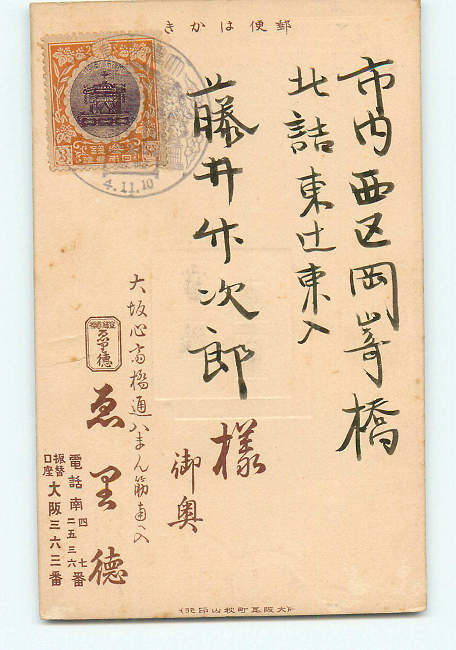 郵便はかき
市内西区岡嵜橋
北詰東辻東入
藤井竹次郎
様
御奥
大坂心斎橋通八まん筋南入
ゑ里徳
電話南
四二五三七六番
振替口座
大阪三六二番
3
4.11.10